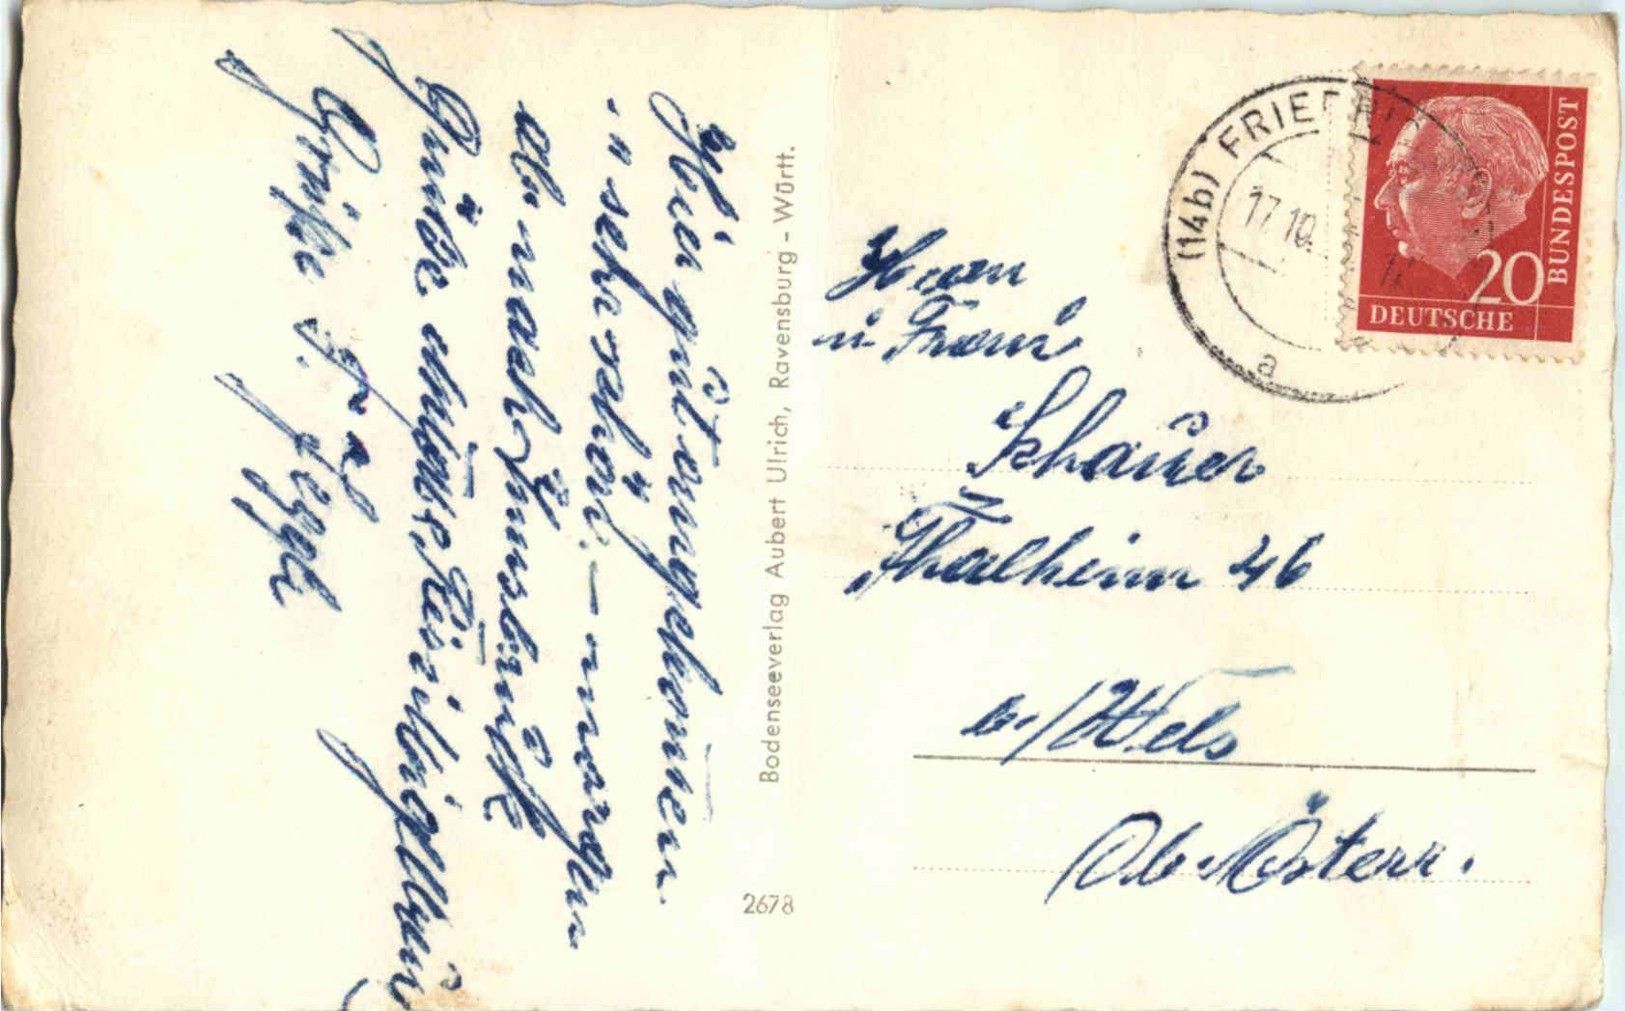 Hier gut angekommen
u. sehr schön. – morgen
ab nach Innsbruck
Grüße
Grüße v.
Bodenseeverlag Aubert Ulrich, Ravensburg – Württ.
2678
(14b) FRIEDRI
17.10.
a
DEUTSCHE
BUNDESPOST
20
Herrn
u. Frau
Schauer
Thalheim 46
b./Wels
Ob. Österr.